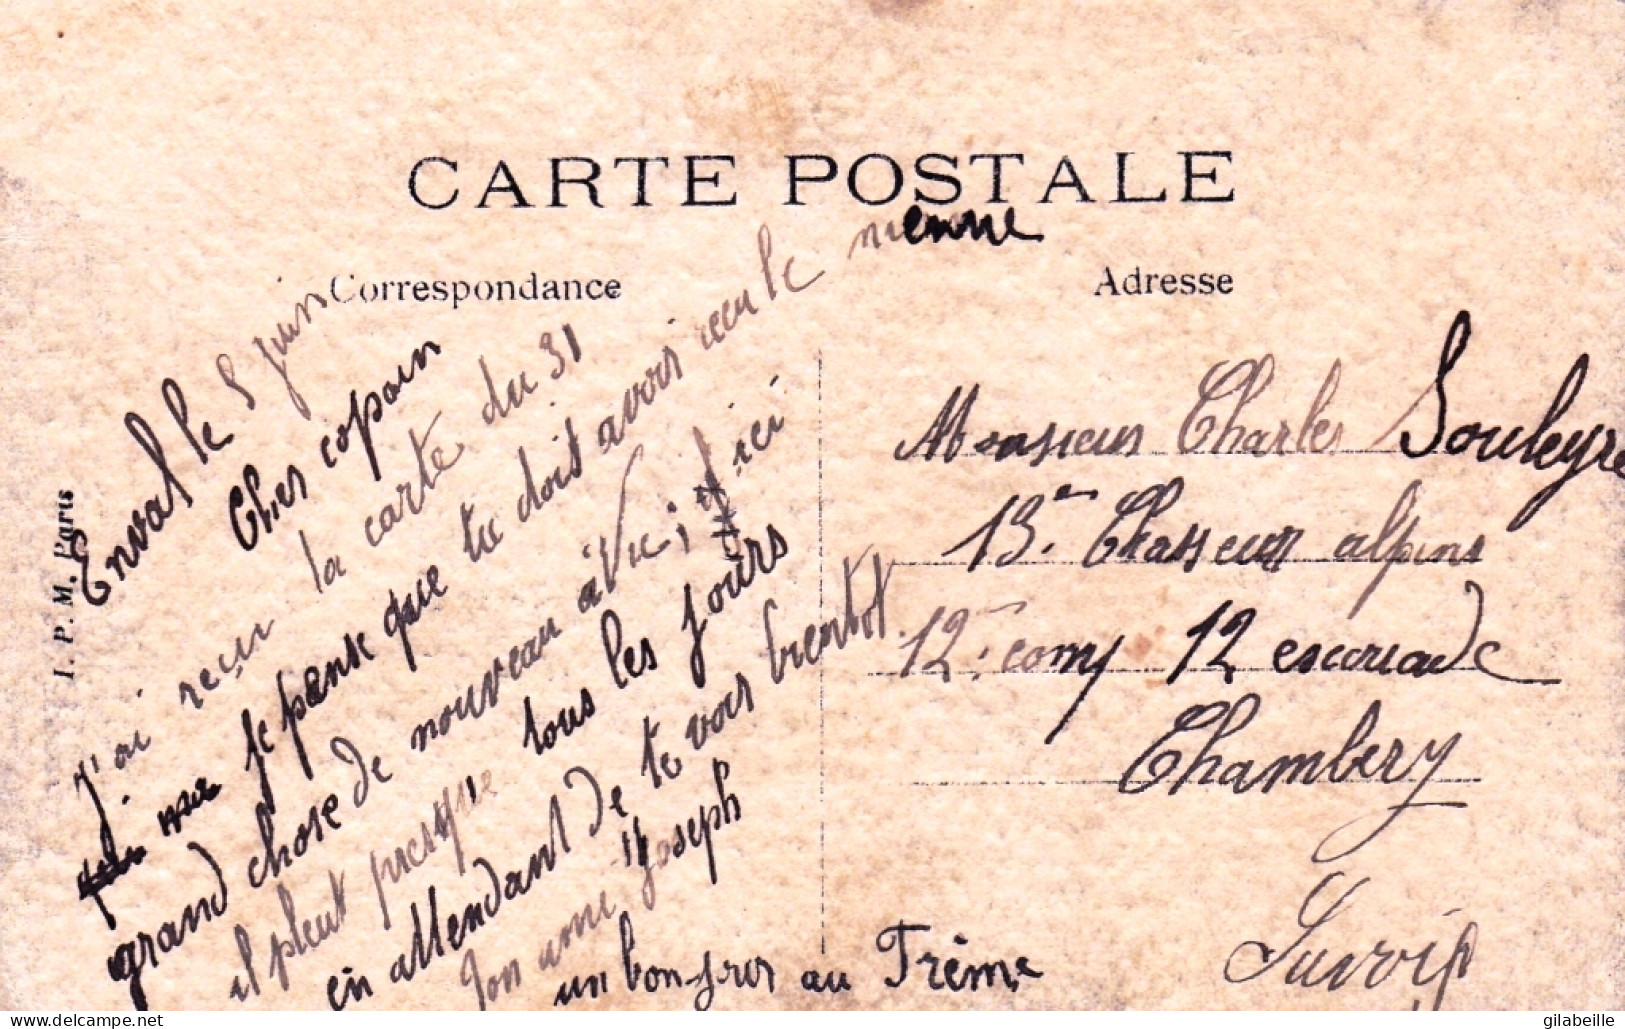 CARTE POSTALE
Correspondance
Adresse
I. P. M. Paris
Enval le 5 juin
Cher copain
J'ai reçu la carte du 31
je pense que tu doit avoir recu le mienne
grand chose de nouveau à Vic; d ici
il pleut presque tous les jours
en attendant de te voir bientot
Ton ami Joseph
un bonjour au Trême
Monsieur Charles Souleyre
13e Chasseur alpins
12e comp 12 escouade
Chambery
Suivip
gilabeille